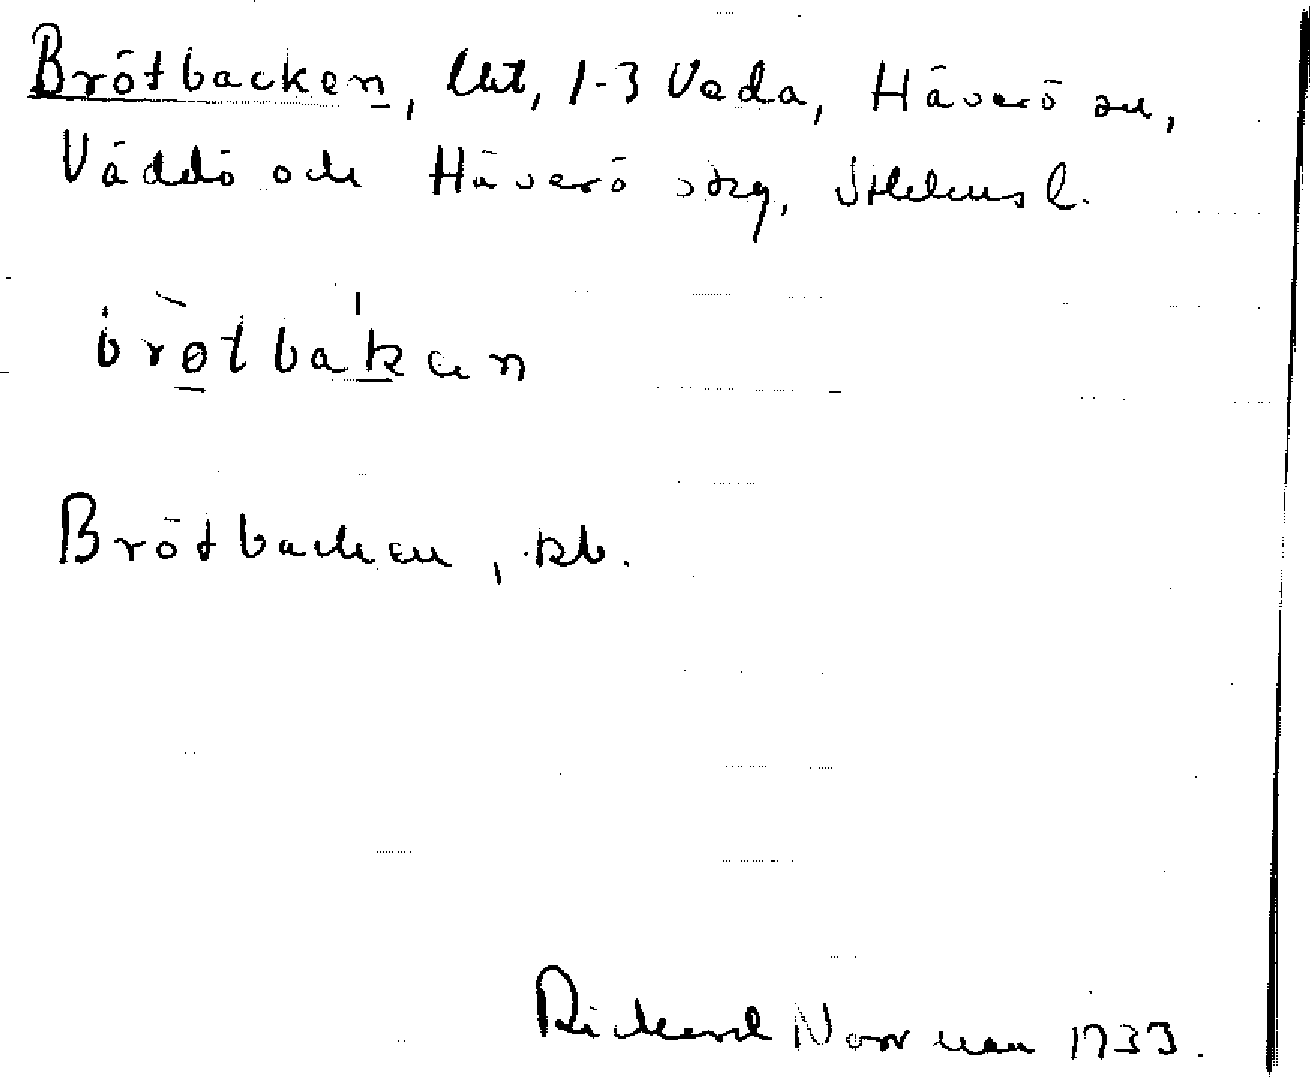 Brötbacken, lht, 1-3 Vada, Häverö sn,
Väddö och Häverö skg, Sthlms l.
brötbakan
Brötbacken, kb.
Rickard Norrman 1933.